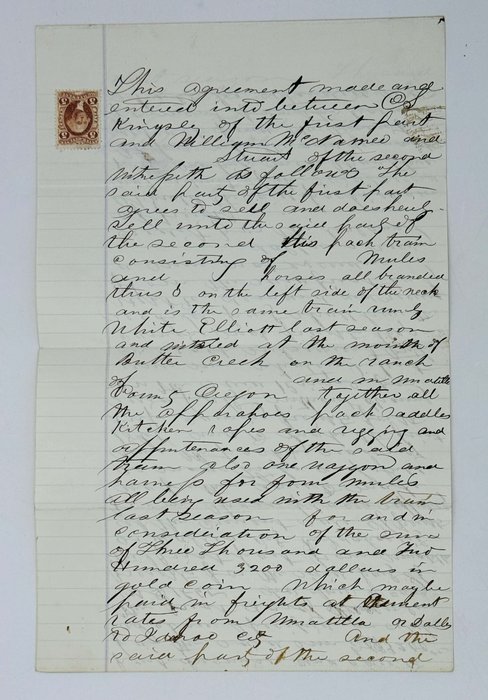 This agreement made and
entered into between C S
Kingsly of the first part
and William McNamee and
Stuart of the second
witnesseth as follows The
said party of the first part
agrees to sell and does hereby
sell unto the said party of
the second this pack train
consisting of mules
and horses all branded
thus on the left side of the neck
and is the same train run by
White Elliott last season
and at the mouth of
Butter Creek on the ranch
of and in Umatilla
County Oregon together all
the apparahoes pack saddles
Kitchen ropes and rigging and
appurtenances of the said
train also one waggon and
harness for four mules
all being used with the train
last season for and in
consideration of the sum
of Three Thousand and Two
Hundred 3200 dollars in
gold coin which may be
paid in frights at current
rates from Umatilla or Dalles
to Idaho City And the
said party of the second